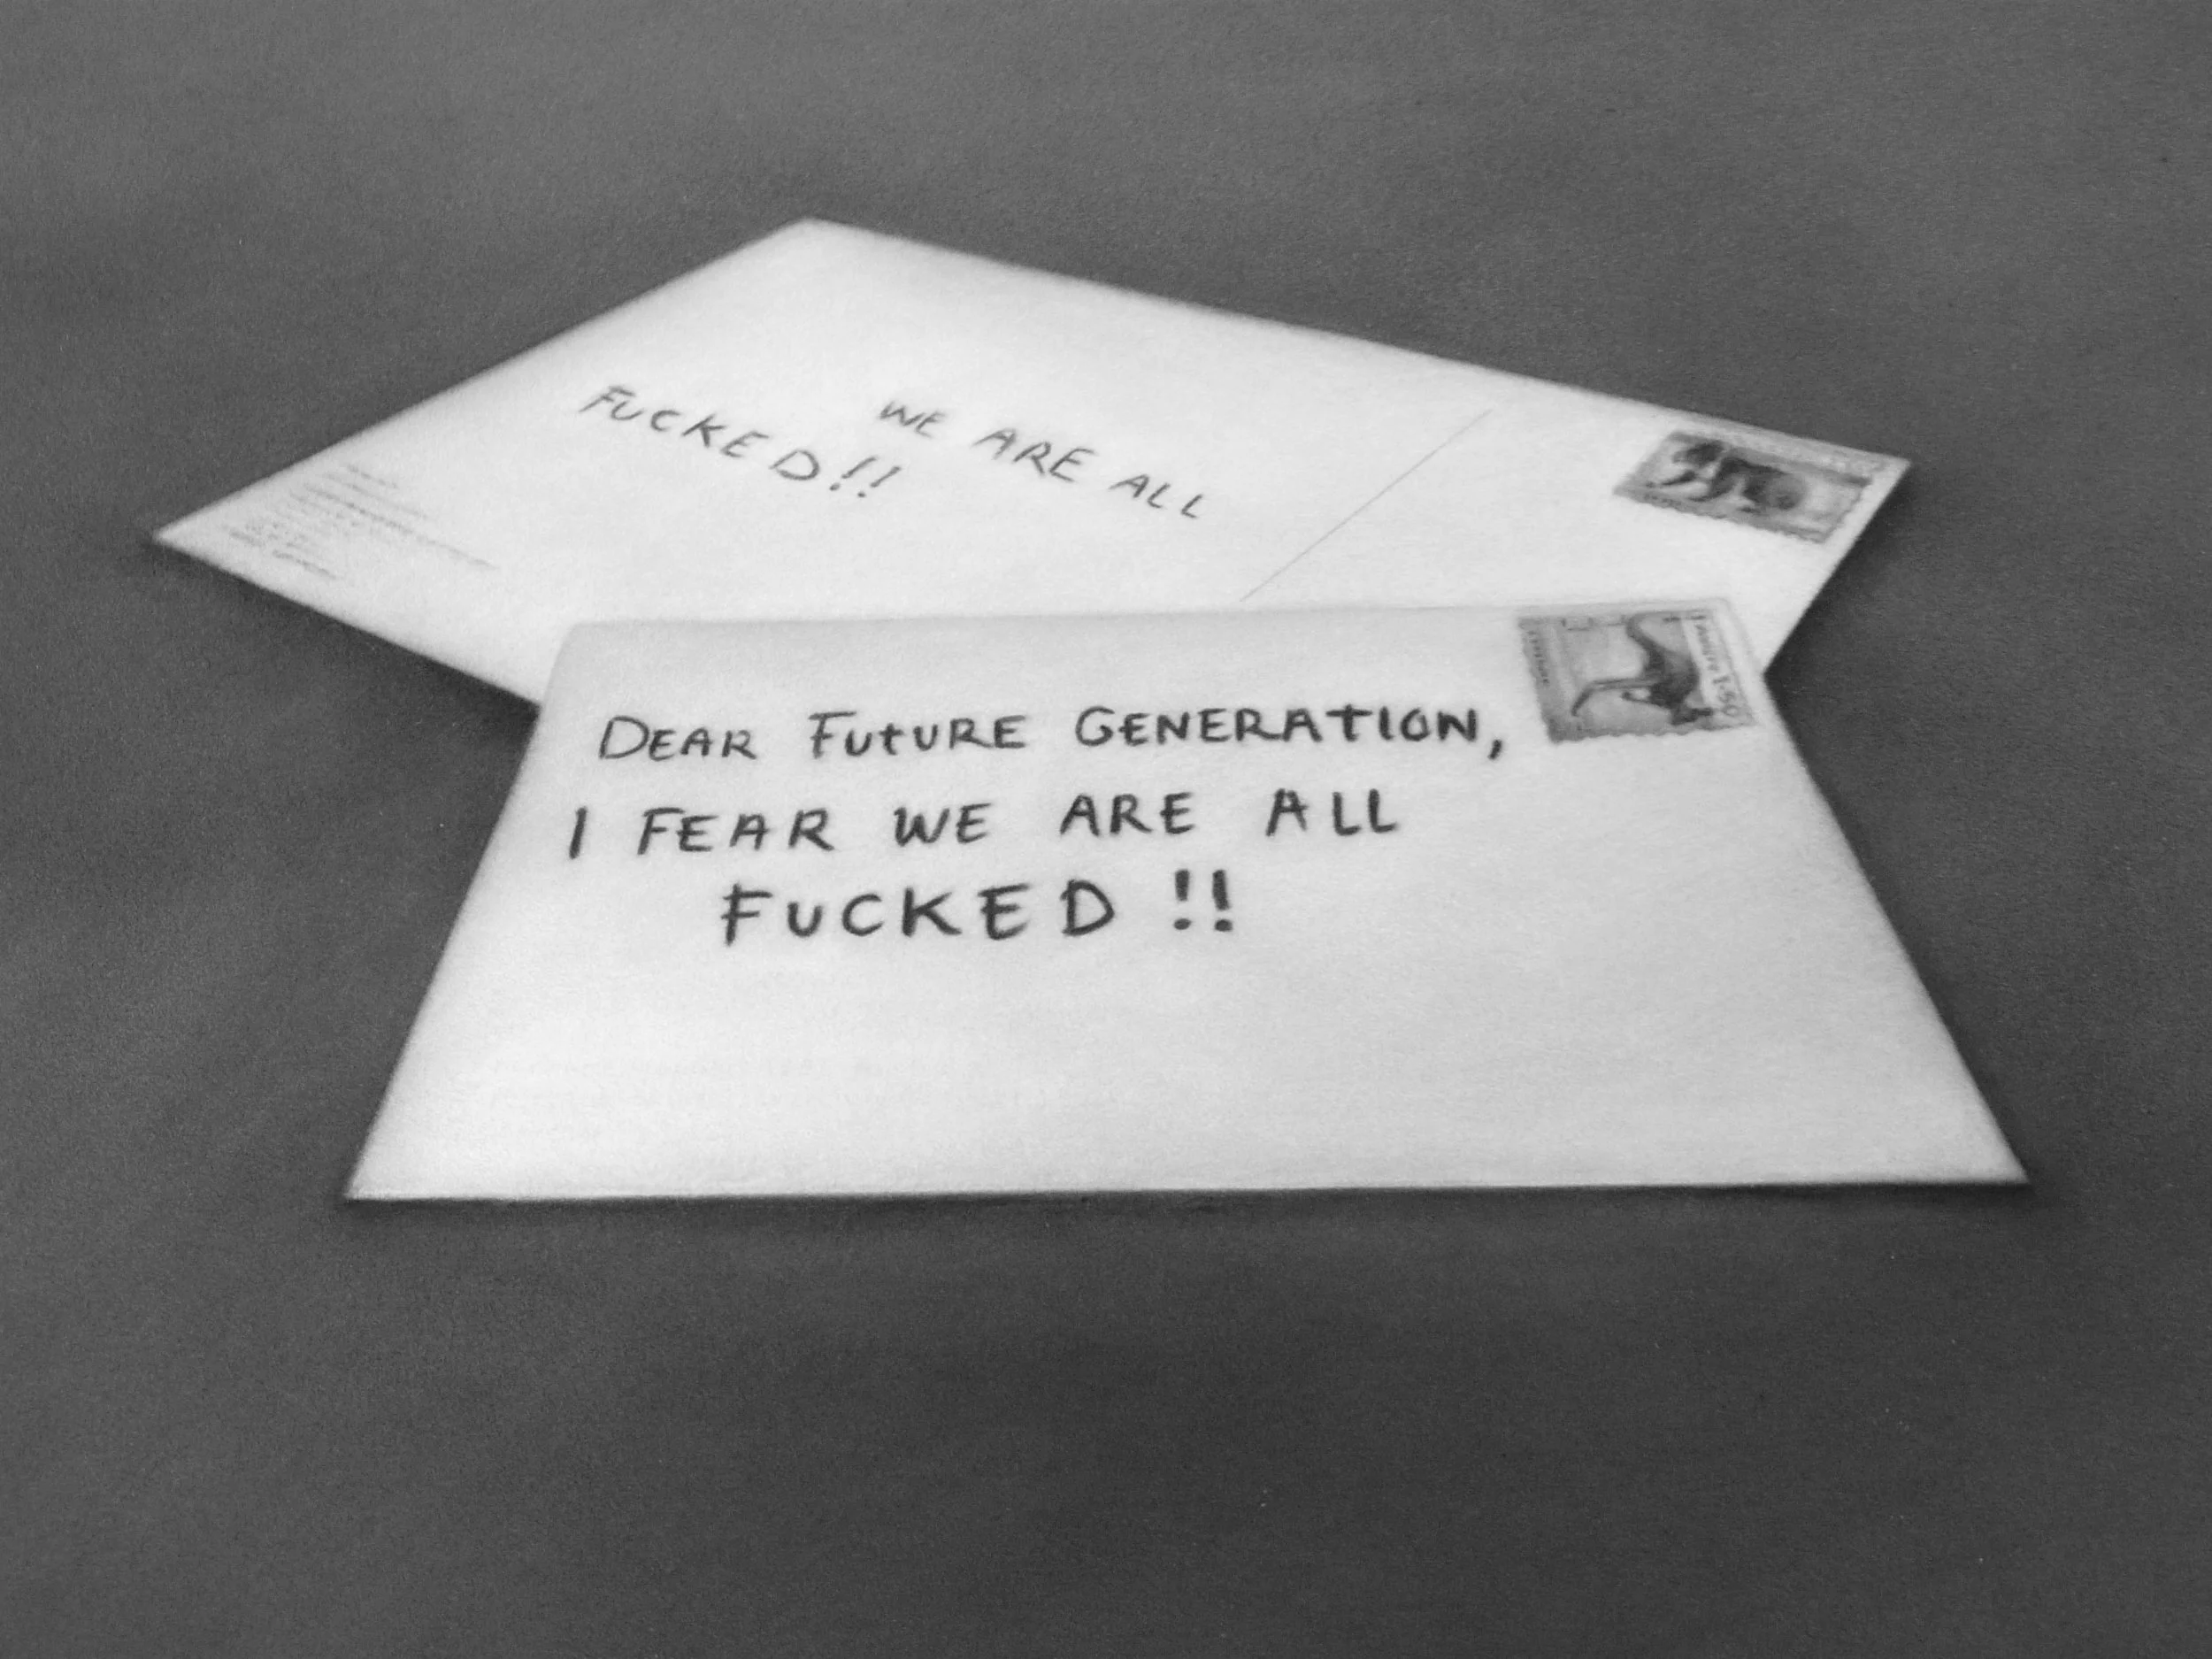 WE ARE ALL
FUCKED!!
DEAR FUTURE GENERATION,
I FEAR WE ARE ALL
FUCKED !!